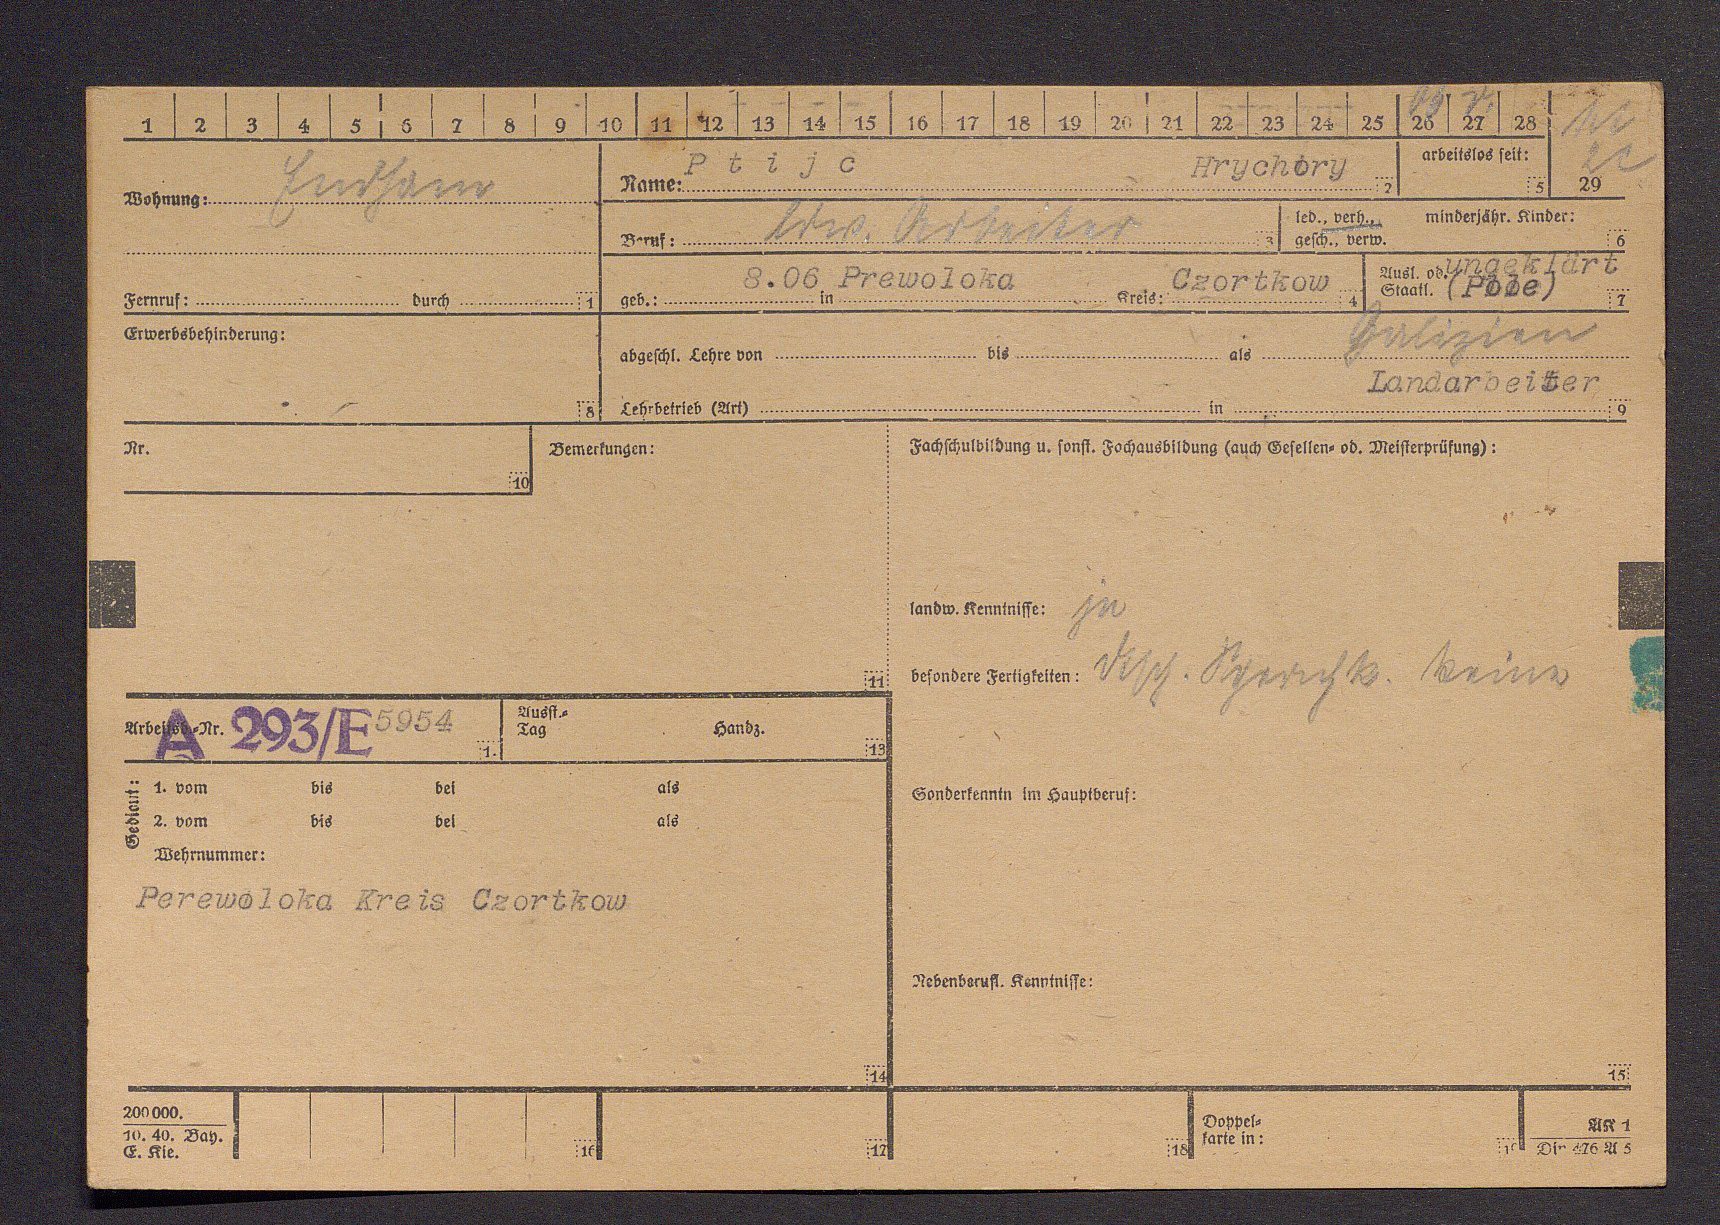 1 2 3 4 5 6 7 8 9 10 11 12 13 14 15 16 17 18 19 20 21 22 23 24 25 26 27 28 29
Wohnung: Endham
Name: Ptijc Hrychory 2
arbeitslos seit: 5
Beruf: ldw. Arbeiter 3
led., verh., gesch., verw.
minderjähr. Kinder: 6
Fernruf: durch 1
geb.: 8.06 in Prewoloka Kreis: Czortkow 4
Ausl. od. Staatl. ungeklärt (Pole) 7
Erwerbsbehinderung: 8
Galizien
abgeschl. Lehre von bis als
Landarbeiter
Lehrbetrieb (Art) in 9
Nr. 10
Bemerkungen: 11
Fachschulbildung u. sonst. Fachausbildung (auch Gesellen- od. Meisterprüfung):
landw. Kenntnisse: ja
besondere Fertigkeiten: dtsch. Sprachk. keine
Arbeitsb.-Nr. A 293/E 5954 1.
Ausst.-Tag Handz. 13
Gedient:
1. vom bis bei als
2. vom bis bei als
Wehrnummer:
Perewoloka Kreis Czortkow
14
Sonderkenntn im Hauptberuf:
Nebenberufl. Kenntnisse:
15
200000.
10. 40. Bay.
E. Kie.
16 17 18
Doppel-
karte in:
AK 1
Din 476 A 5